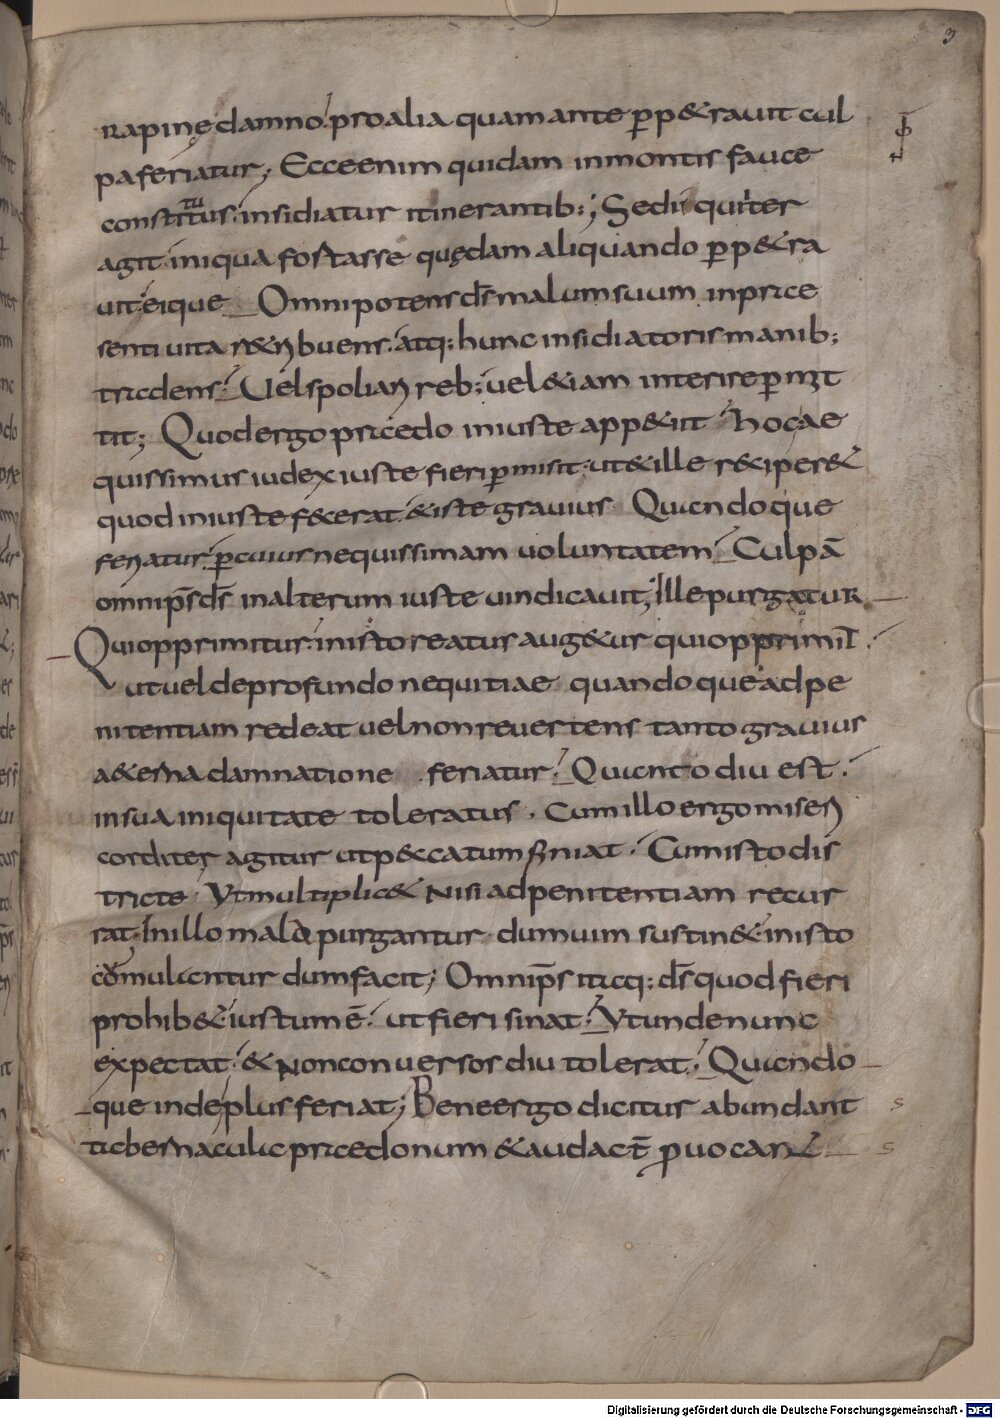 3
rapinę damno. pro alia quam ante ꝑp&rauit cul
pa feriatur; Ecce enim quidam in montis fauce
constitutus. insidiatur itinerantib:; Sed is qui iter
agit. iniqua fortasse quędam aliquando ꝑp&ra
uit. eique Omnipotens ds̄ malum suum in prae
senti uita r&ribuens. atq: hunc insidiatoris manib;
tradens. Uel spoliari reb; uel &iam interire ꝑmit
tit; Quod ergo praedo iniuste app&iit hoc ae
quissimus iudex iuste fieri ꝑmisit. ut & ille reciper&
quod iniuste fecerat. & iste grauius Quandoque
feriatur. ꝑ cuius nequissimam uoluntatem Culpā
omnip̄s ds̄ in alterum iuste uindicauit; Ille purgatur
Qui opprimitur. in isto reatus aug&ur qui opprimit.
ut uel de profundo nequitiae quandoque ad pe
nitentiam redeat uel non reuertens tanto grauius
a&erna damnatione feriatur. Quanto diu est.
in sua iniquitate toleratus. Cum illo ergo miseri
corditer agitur ut peccatum finiat. Cum isto dis
tricte Ut multiplic& Nisi ad penitentiam recur
rat. In illo mala purgantur dum uim sustin& in isto
comulantur dum facit; Omnip̄s itaq: ds̄ quod fieri
prohib& iustum ē. ut fieri sinat. Ut unde nunc
expectat. & Non conuersos diu tolerat. Quando
que inde plus feriat; Bene ergo dicitur abundant
tabernacula praedonum & audact̄ ꝓuocant
s
s
Digitalisierung gefördert durch die Deutsche Forschungsgemeinschaft - DFG